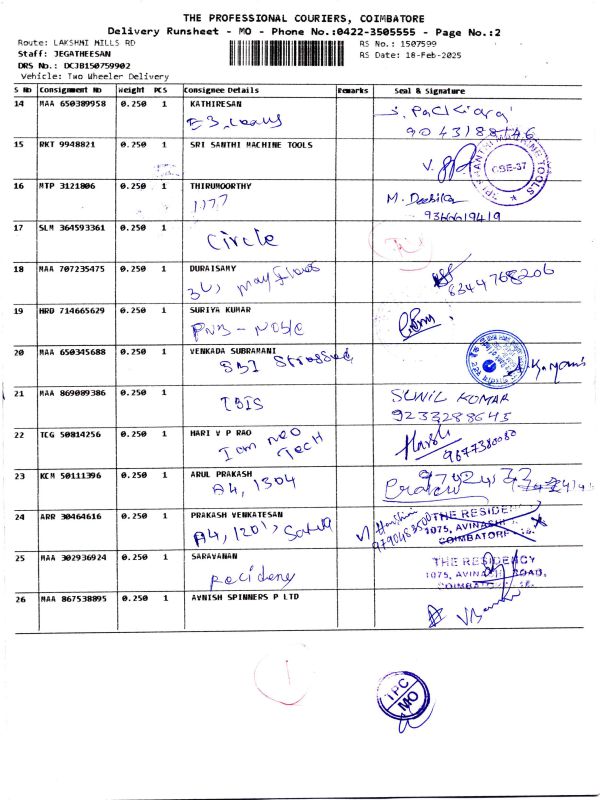 THE PROFESSIONAL COURIERS, COIMBATORE
Delivery Runsheet - MO - Phone No.:0422-3505555 - Page No.:2
Route: LAKSHMI MILLS RD RS No.: 1507599
Staff: JEGATHEESAN RS Date: 18-Feb-2025
DRS No.: DCJB150759902
Vehicle: Two Wheeler Delivery
S No Consignment No Weight PCS Consignee Details Remarks Seal & Signature
14 MAA 650389958 0.250 1 KATHIRESAN
9043188146
15 RKT 9948821 0.250 1 SRI SANTHI MACHINE TOOLS
CBE-37
16 MTP 3121806 0.250 1 THIRUMOORTHY
1177
9366619419
17 SLM 364593361 0.250 1
Circle
18 MAA 707235475 0.250 1 DURAISAMY
6344768206
19 HRD 714665629 0.250 1 SURIYA KUMAR
20 MAA 650345688 0.250 1 VENKADA SUBRAMANI
SBI Stressed
21 MAA 869089386 0.250 1 SUNIL KUMAR
IBIS 9233288645
22 TCG 50814256 0.250 1 HARI V P RAO
I am neo Harsh
TECH 9677380080
23 KCM 50111396 0.250 1 ARUL PRAKASH
A4, 1304
24 ARR 30464616 0.250 1 PRAKASH VENKATESAN
A4, 1201,
THE RESIDENCY
1075, AVINASHI
COIMBATORE
25 MAA 302936924 0.250 1 SARAVANAN
Recideny
THE RESIDENCY
1075, AVINASHI ROAD,
26 MAA 867538895 0.250 1 AVNISH SPINNERS P LTD
TPC
MO